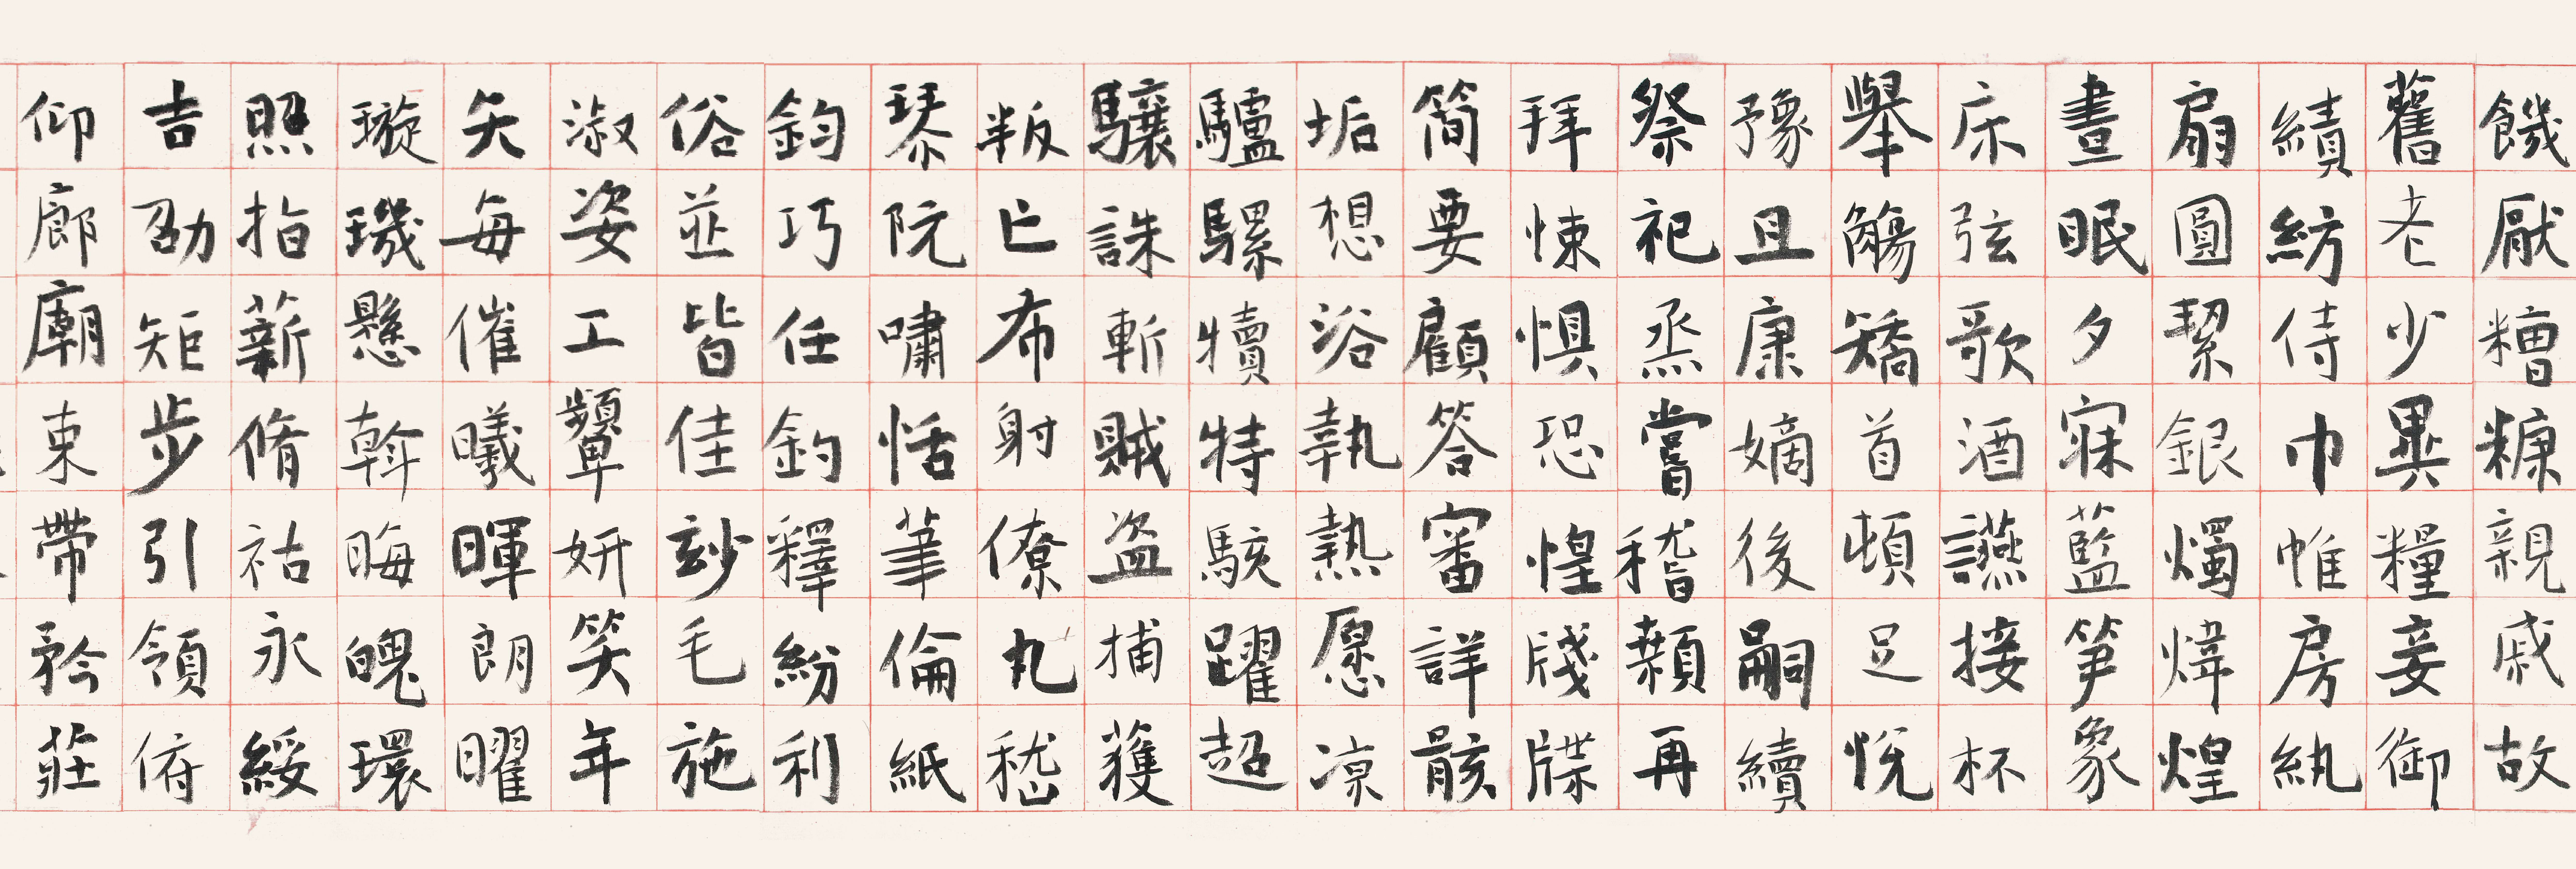 饑厭糟糠親戚故
舊老少異糧妾御
績紡侍巾帷房紈
扇圓絜銀燭煒煌
晝眠夕寐藍笋象
床弦歌酒讌接杯
舉觴矯首頓足悅
豫且康嫡後嗣續
祭祀烝嘗稽顙再
拜悚懼恐惶牋牒
簡要顧答審詳骸
垢想浴執熱愿凉
驢騾犢特駭躍超
驤誅斬賊盜捕獲
叛亡布射僚丸嵇
琴阮嘯恬筆倫紙
鈞巧任釣釋紛利
俗並皆佳玅毛施
淑姿工顰妍笑年
矢每催曦暉朗曜
璇璣懸斡晦魄環
照指薪脩祜永綏
吉劭矩步引領俯
仰廊廟束帶矜莊